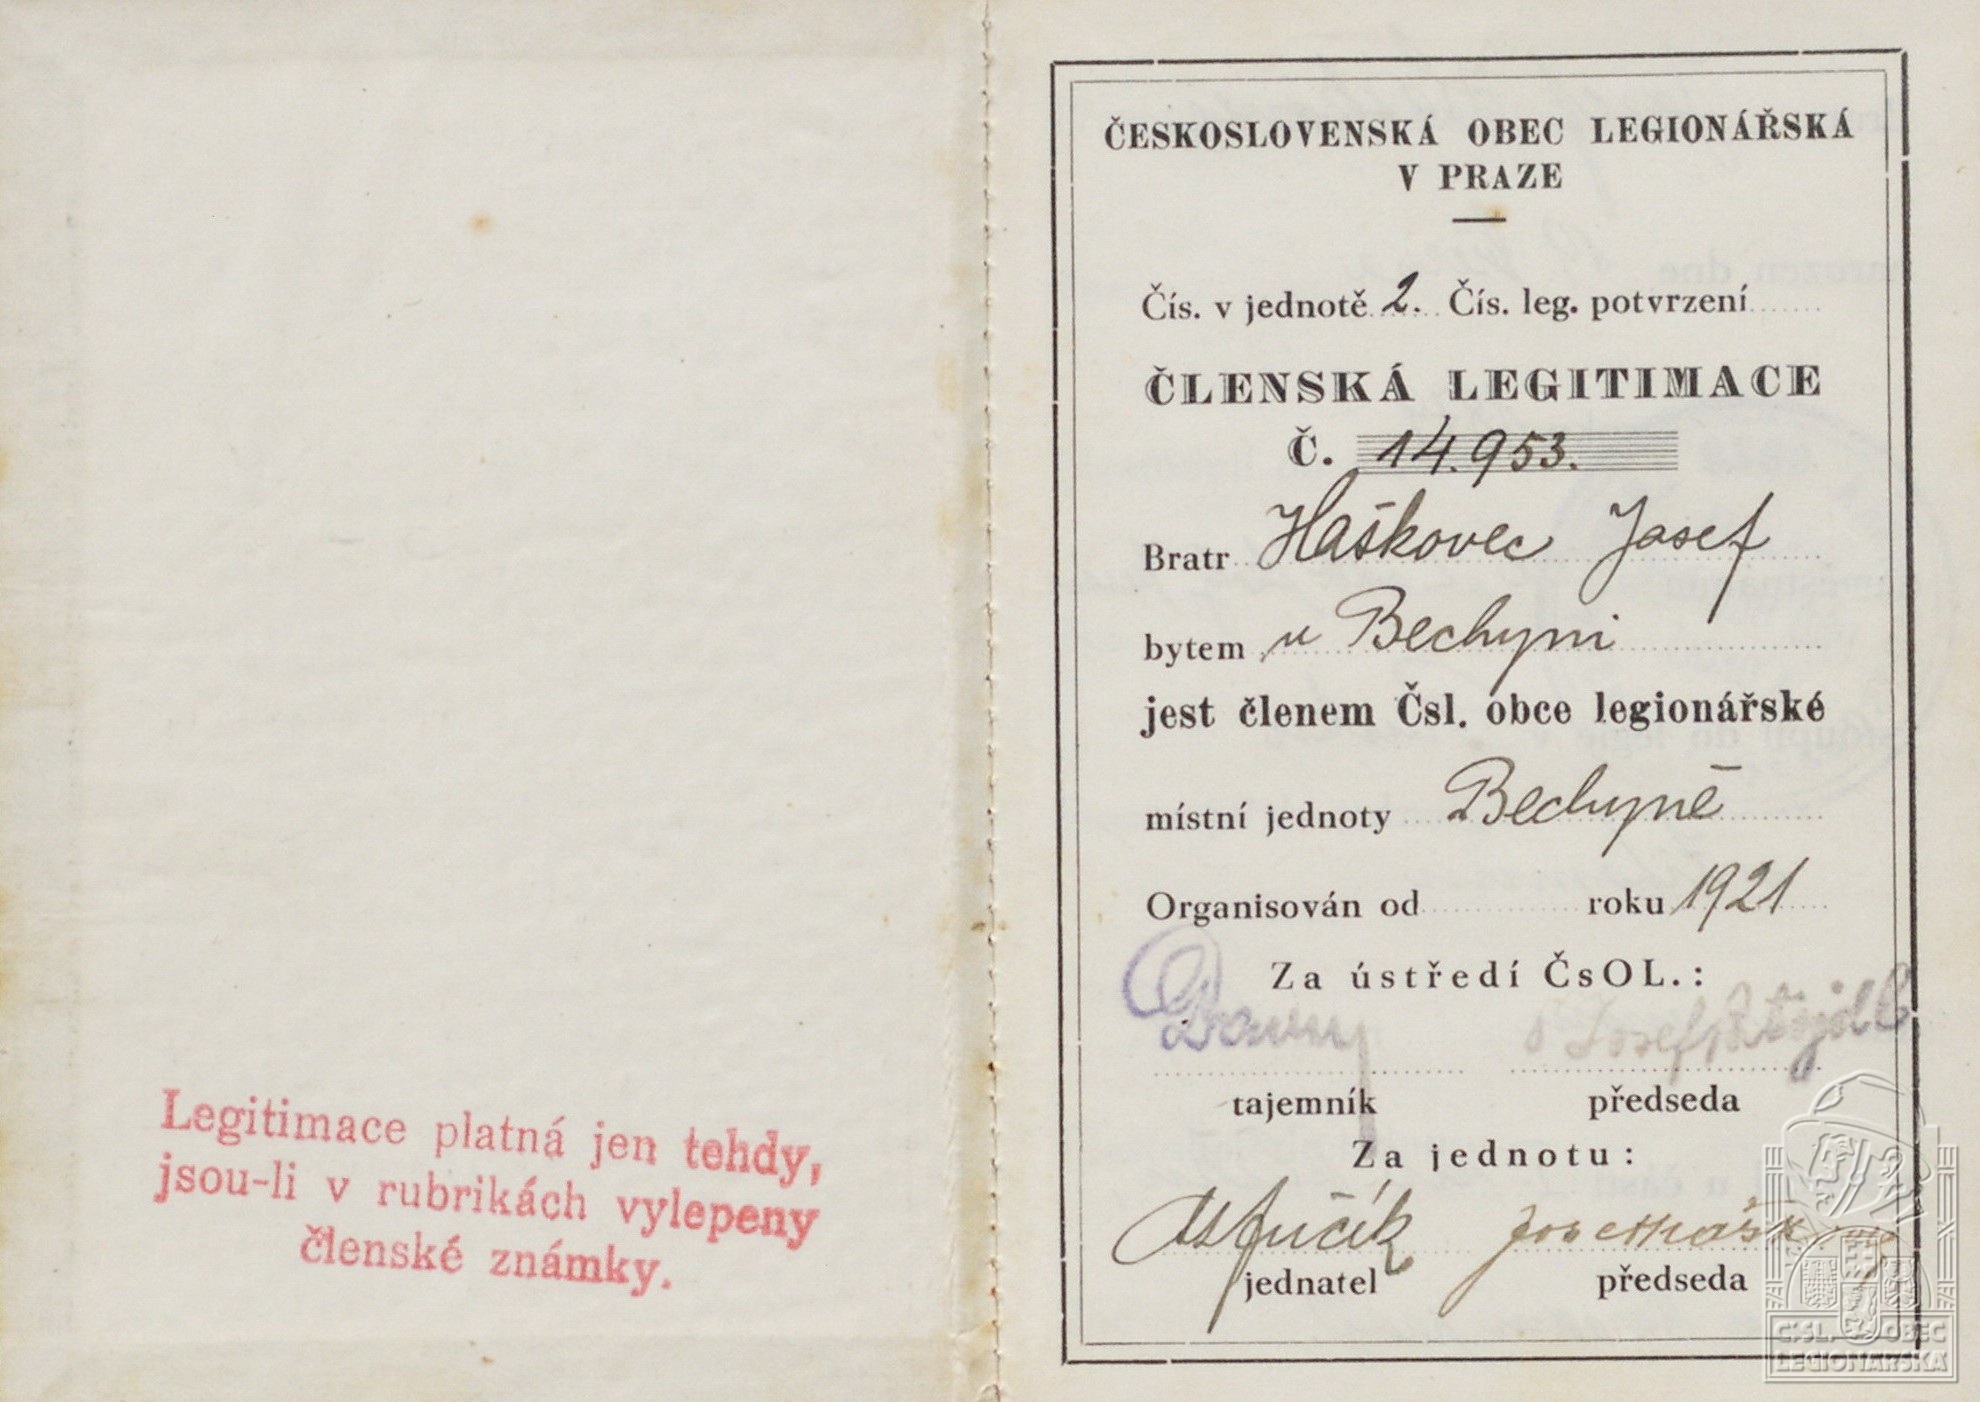 Legitimace platná jen tehdy,
jsou-li v rubrikách vylepeny
členské známky.
ČESKOSLOVENSKÁ OBEC LEGIONÁŘSKÁ
V PRAZE
Čís. v jednotě 2. Čís. leg. potvrzení
ČLENSKÁ LEGITIMACE
Č. 14.953.
Bratr Haškovec Josef
bytem v Bechyni
jest členem Čsl. obce legionářské
místní jednoty Bechyně
Organisován od roku 1921
Za ústředí ČsOL.:
Josef
tajemník předseda
Za jednotu:
jednatel předseda
ČSL. OBEC
LEGIONÁŘSKÁ